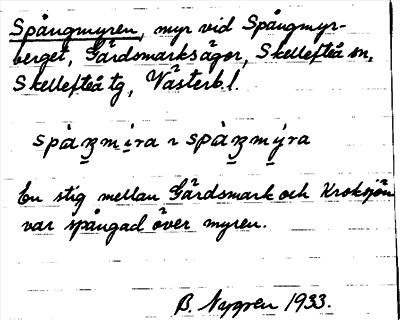 Spångmyren, myr vid Spångmyr-
berget, Gärdsmarksägor, Skellefteå sn,
Skellefteå tg, Västerb. l.
En stig mellan Gärdsmark och Kroksjön
var spångad över myren.
B. Nygren 1933.